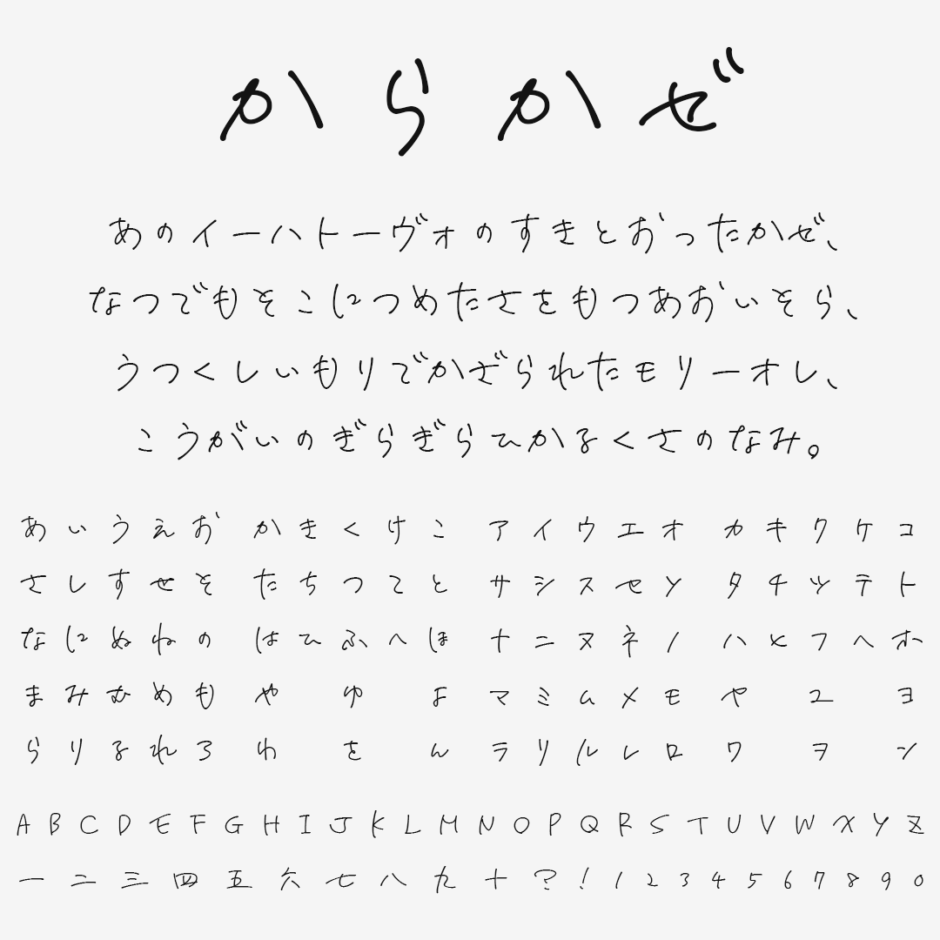 からかぜ
あのイーハトーヴォのすきとおったかぜ、
なつでもそこにつめたさをもつあおいそら、
うつくしいもりでかざられたモリーオレ、
こうがいのぎらぎらひかるくさのなみ。
あいうえお かきくけこ アイウエオ カキクケコ
さしすせそ たちつてと サシスセソ タチツテト
なにぬねの はひふへほ ナニヌネノ ハヒフヘホ
まみむめも や ゆ よ マミムメモ ヤ ユ ヨ
らりるれろ わ を ん ラリルレロ ワ ヲ ン
A B C D E F G H I J K L M N O P Q R S T U V W X Y Z
一 二 三 四 五 六 七 八 九 十 ? ! 1 2 3 4 5 6 7 8 9 0